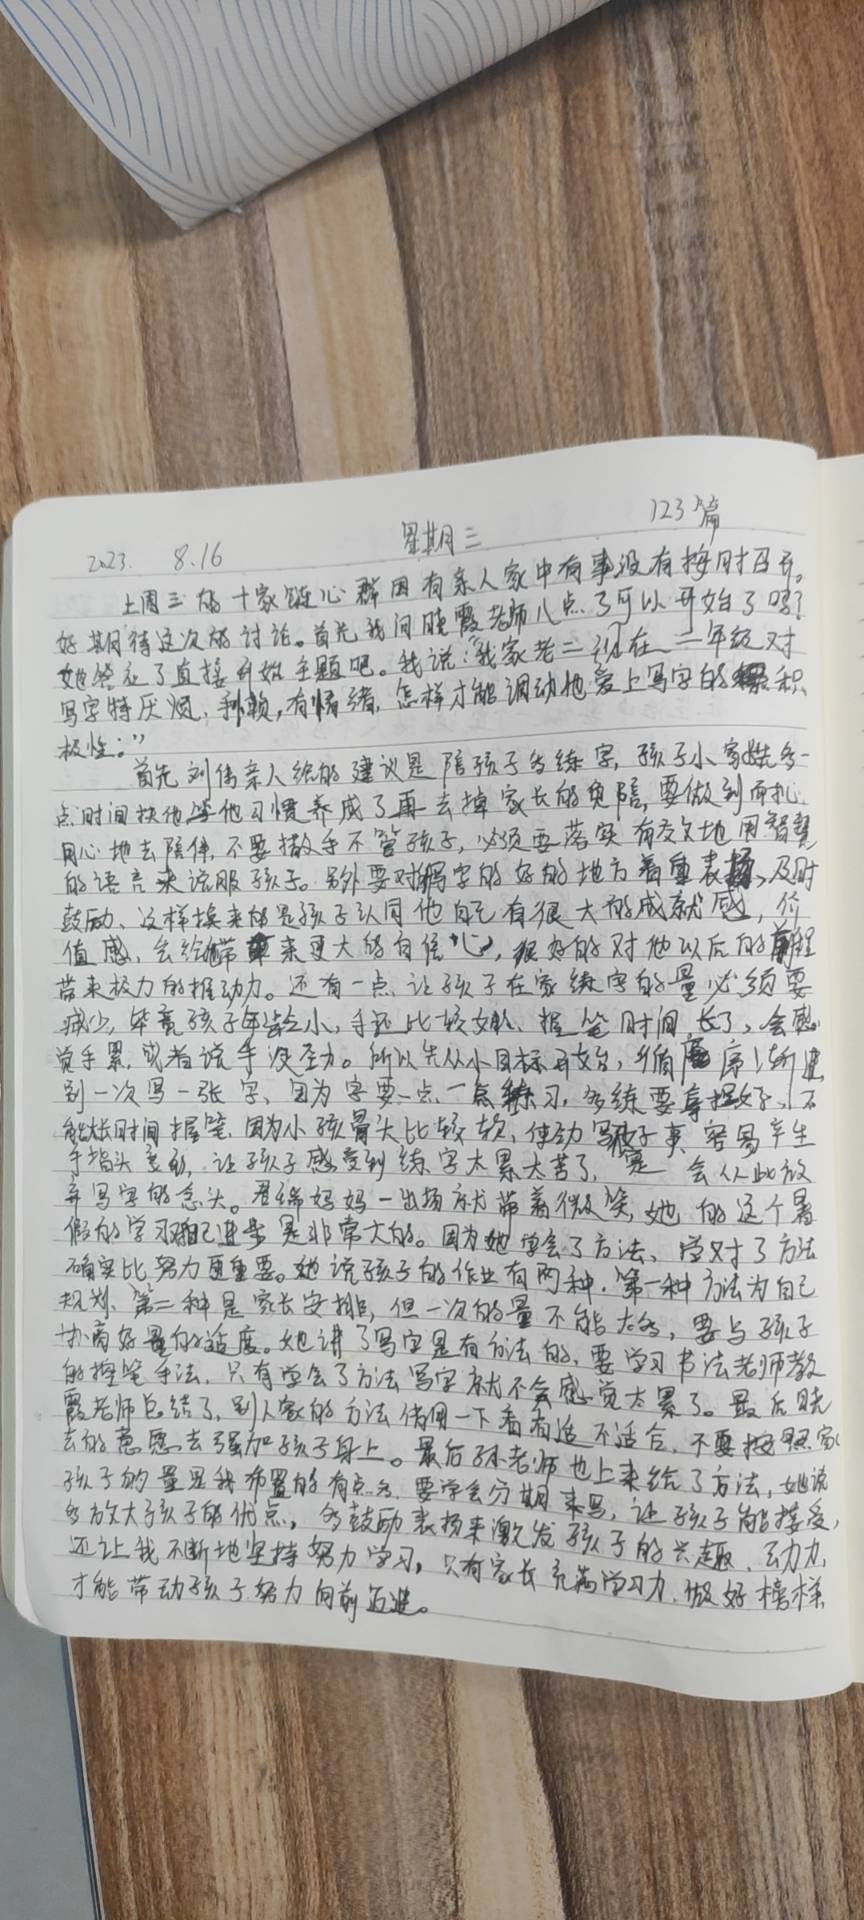 2023. 8.16 星期三 123篇
上周三的十家链心群因有亲人家中有事没有按时召开。
好期待这次的讨论。首先我问晓霞老师八点了可以开始了吗?
她答应了直接开始主题吧。我说:"我家老二现在二年级对
写字特厌烦,有情绪,怎样才能调动他爱上写字的积
极性:"
首先刘伟亲人给的建议是陪孩子多练字,孩子小家长多一
点时间扶他,等他习惯养成了再去掉家长的陪,要做到
用心地去陪伴,不要撒手不管孩子,必须要落实有效地用智慧
的语言来说服孩子。另外要对写字的好的地方着重表扬,及时
鼓励、这样换来的是孩子认同他自己有很大的成就感,价
值感,会给带来更大的自信心,很好的对他以后的前程
带来极力的推动力。还有一点,让孩子在家练字的量必须要
减少,毕竟孩子年龄小,手还比较,握笔时间长了,会感
觉手累,或者说手没劲。所以先从小目标开始,循序渐进
别一次写一张字、因为字要一点一点练习,多练要掌握好、不
能太长时间握笔,因为小孩骨头比较软,使劲写容易产生
手指头变形,让孩子感受到练字太累太苦了,会从此放
弃写字的念头。君瑞妈妈一出场就带着微笑,她的这个暑
假的学习进步是非常大的。因为她学会了方法、学对了方法
确实比努力更重要。她说孩子的作业有两种,第一种方法为自己
规划、第二种是家长安排,但一次的量不能太多,要与孩子
协商好量的适度。她讲了写字是有方法的,要学习书法老师教
的握笔手法,只有学会了方法写字就不会感觉太累了。最后晓
霞老师总结了,别人家的方法借用一下看有适不适合,不要按照家长
去的意愿去强加孩子身上。最后孙老师也上来给了方法,她说
孩子的量是我布置的有点多,要学会分期来写,让孩子能接受,
多放大孩子的优点,多鼓励表扬来激发孩子的兴趣、动力,
还让我不断地坚持努力学习,只有家长充满学习力,做好榜样
才能带动孩子努力向前迈进。